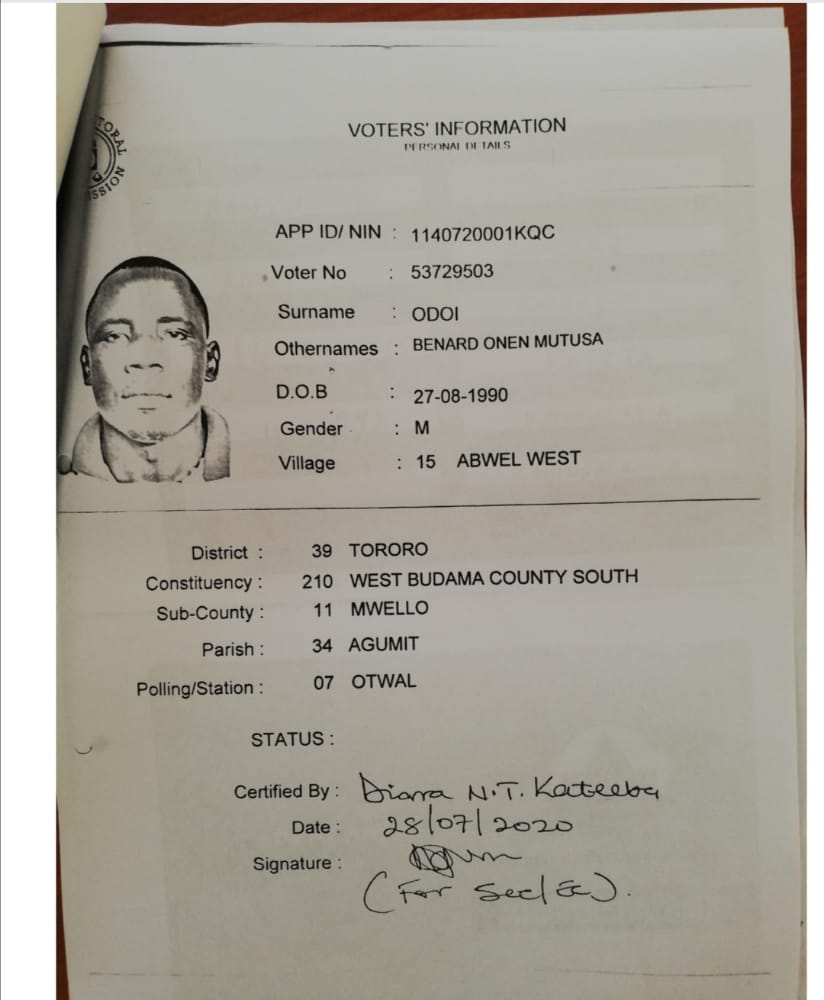 TORAL
SSION
VOTERS' INFORMATION
PERSONAL DETAILS
APP ID/ NIN : 1140720001KQC
Voter No : 53729503
Surname : ODOI
Othernames : BENARD ONEN MUTUSA
D.O.B : 27-08-1990
Gender : M
Village : 15 ABWEL WEST
District : 39 TORORO
Constituency : 210 WEST BUDAMA COUNTY SOUTH
Sub-County : 11 MWELLO
Parish : 34 AGUMIT
Polling/Station : 07 OTWAL
STATUS :
Certified By : Diana N.T. Kateeba
Date : 28/07/2020
Signature :
(For Sec/EC).